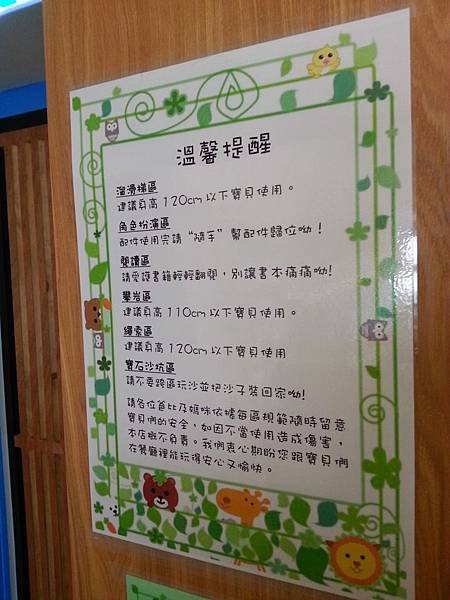 溫馨提醒
溜滑梯區
建議身高120cm以下寶貝使用。
角色扮演區
配件使用完請“隨手”幫配件歸位呦！
閱讀區
請愛護書籍輕輕翻閱，別讓書本痛痛呦!
攀岩區
建議身高110cm以下寶貝使用。
繩索區
建議身高120cm以下寶貝使用
寶石沙坑區
請不要跨區玩沙並把沙子裝回家呦!
請各位爸比及媽咪依據每區規範隨時留意
寶貝們的安全，如因不當使用造成傷害，
本店概不負責。我們衷心期盼您跟寶貝們
在餐廳裡能玩得安心又愉快。